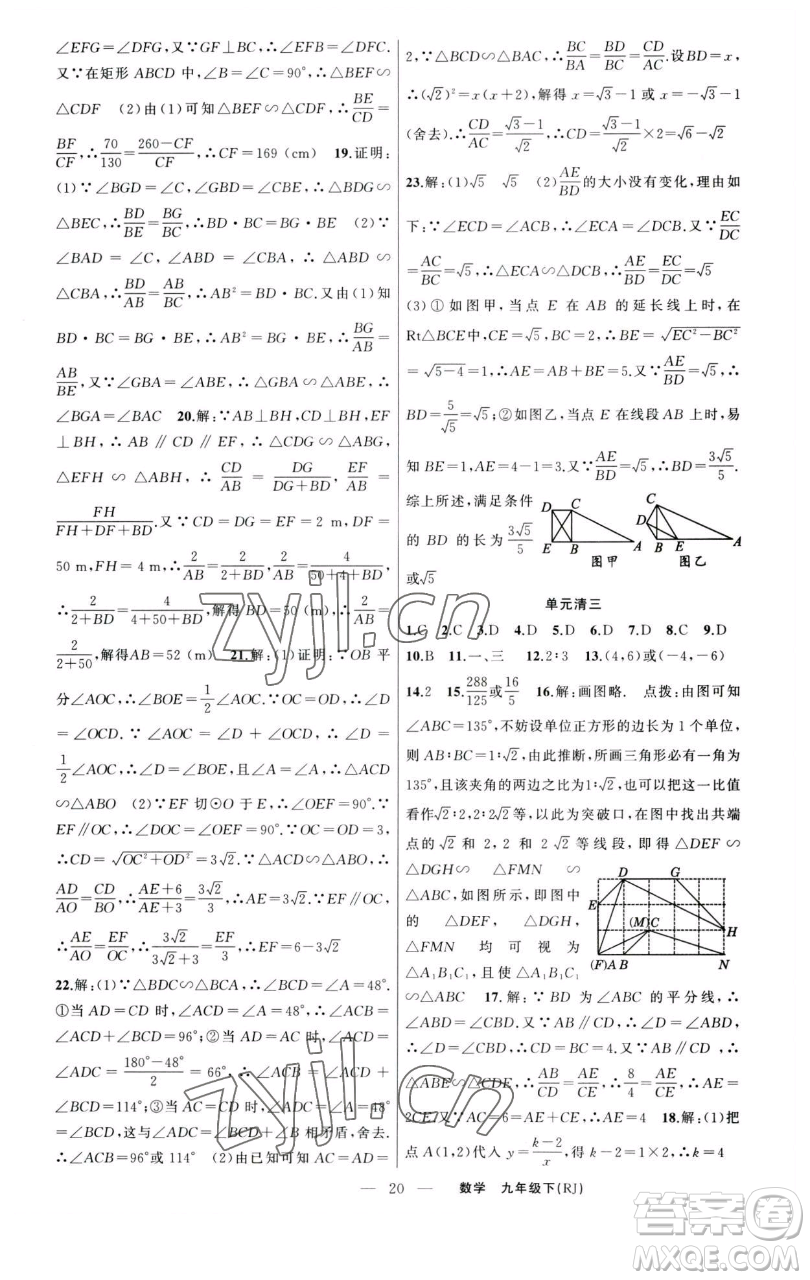 ∠EFG=∠DFG,又∵GF⊥BC,∴∠EFB=∠DFC.
又∵在矩形 ABCD 中,∠B=∠C=90°,∴△BEF∽
△CDF (2)由(1)可知△BEF∽△CDF,∴BE/CD=
BF/CF,∴70/130=(260-CF)/CF,∴CF=169(cm) 19.证明:
(1)∵∠BGD=∠C,∠GBD=∠CBE,∴△BDG∽
△BEC,∴BD/BE=BG/BC,∴BD·BC=BG·BE (2)∵
∠BAD=∠C,∠ABD=∠CBA,∴△ABD∽
△CBA,∴BD/AB=AB/BC,∴AB²=BD·BC.又由(1)知
BD·BC=BG·BE,∴AB²=BG·BE,∴BG/AB=
AB/BE,又∵∠GBA=∠ABE,∴△GBA∽△ABE,∴
∠BGA=∠BAC 20.解:∵AB⊥BH,CD⊥BH,EF
⊥BH,∴AB∥CD∥EF,∴△CDG∽△ABG,
△EFH∽△ABH,∴CD/AB=DG/(DG+BD),EF/AB=
FH/(FH+DF+BD).又∵CD=DG=EF=2 m,DF=
50 m,FH=4 m,∴2/AB=2/(2+BD),2/AB=4/(50+4+BD),
∴2/(2+BD)=4/(4+50+BD),解得BD=50(m),∴2/AB=
2/(2+50),解得AB=52(m) 21.解:(1)证明:∵OB 平
分∠AOC,∴∠BOE=1/2∠AOC.∵OC=OD,∴∠D
=∠OCD.∵∠AOC=∠D+∠OCD,∴∠D=
1/2∠AOC,∴∠D=∠BOE,且∠A=∠A,∴△ACD
∽△ABO (2)∵EF 切⊙O 于 E,∴∠OEF=90°.∵
EF∥OC,∴∠DOC=∠OEF=90°.∵OC=OD=3,
∴CD=√(OC²+OD²)=3√2.∵△ACD∽△ABO,∴
AD/AO=CD/BO,∴(AE+6)/(AE+3)=3√2/3,∴AE=3√2.∵EF∥OC,
∴AE/AO=EF/OC,∴3√2/(3√2+3)=EF/3,∴EF=6-3√2
22.解:(1)∵△BDC∽△BCA,∴∠BCD=∠A=48°.
①当AD=CD时,∠ACD=∠A=48°,∴∠ACB=
∠ACD+∠BCD=96°;②当AD=AC时,∠ACD=
∠ADC=(180°-48°)/2=66°,∴∠ACB=∠ACD+
∠BCD=114°;③当AC=CD时,∠ADC=∠A=48°=
∠BCD,这与∠ADC=∠BCD+∠B相矛盾,舍去.
∴∠ACB=96°或114° (2)由已知得AC=AD=
2,∵△BCD∽△BAC,∴BC/BA=BD/BC=CD/AC.设BD=x,
∴(√2)²=x(x+2),解得x=√3-1或x=-√3-1
(舍去).∴CD/AC=(√3-1)/√2,∴CD=(√3-1)/√2×2=√6-√2
23.解:(1)√5 √5 (2)AE/BD的大小没有变化,理由如
下:∵∠ECD=∠ACB,∴∠ECA=∠DCB.又∵EC/DC
=AC/BC=√5,∴△ECA∽△DCB,∴AE/BD=EC/DC=√5
(3)①如图甲,当点 E 在 AB 的延长线上时,在
Rt△BCE中,CE=√5,BC=2,∴BE=√(EC²-BC²)
=√(5-4)=1,∴AE=AB+BE=5.又∵AE/BD=√5,∴
BD=5/√5=√5;②如图乙,当点 E 在线段 AB 上时,易
知BE=1,AE=4-1=3.又∵AE/BD=√5,∴BD=3√5/5.
综上所述,满足条件
的 BD 的长为3√5/5
或√5
D C E B A 图甲
C D B E A 图乙
单元清三
1.C 2.C 3.D 4.D 5.D 6.D 7.D 8.C 9.D
10.B 11.一、三 12.2∶3 13.(4,6)或(-4,-6)
14.2 15.288/125或16/5 16.解:画图略. 点拨:由图可知
∠ABC=135°,不妨设单位正方形的边长为 1 个单位,
则 AB∶BC=1∶√2,由此推断,所画三角形必有一角为
135°,且该夹角的两边之比为1∶√2,也可以把这一比值
看作√2∶2,2∶2√2等,以此为突破口,在图中找出共端
点的√2 和 2,2 和 2√2 等线段,即得 △DEF∽
△DGH∽△FMN∽
△ABC,如图所示,即图中
的 △DEF,△DGH,
△FMN 均可视为
△A₁B₁C₁,且△A₁B₁C₁
∽△ABC 17.解:∵BD 为∠ABC 的平分线,∴
D G E (M)C H (F)A B N
∠ABD=∠CBD.又∵AB∥CD,∴∠D=∠ABD,
∴∠D=∠CBD,∴CD=BC=4.又∵AB∥CD,∴
△ABE∽△CDE,∴AB/CD=AE/CE,∴8/4=AE/CE,∴AE=
2CE.又∵AC=6=AE+CE,∴AE=4 18.解:(1)把
点 A(1,2)代入 y=(k-2)/x,得2=k-2,∴k=4
— 20 — 数学 九年级下(RJ)
zyjl.cn
zyjl.cn
答案圈
MXQE.COM